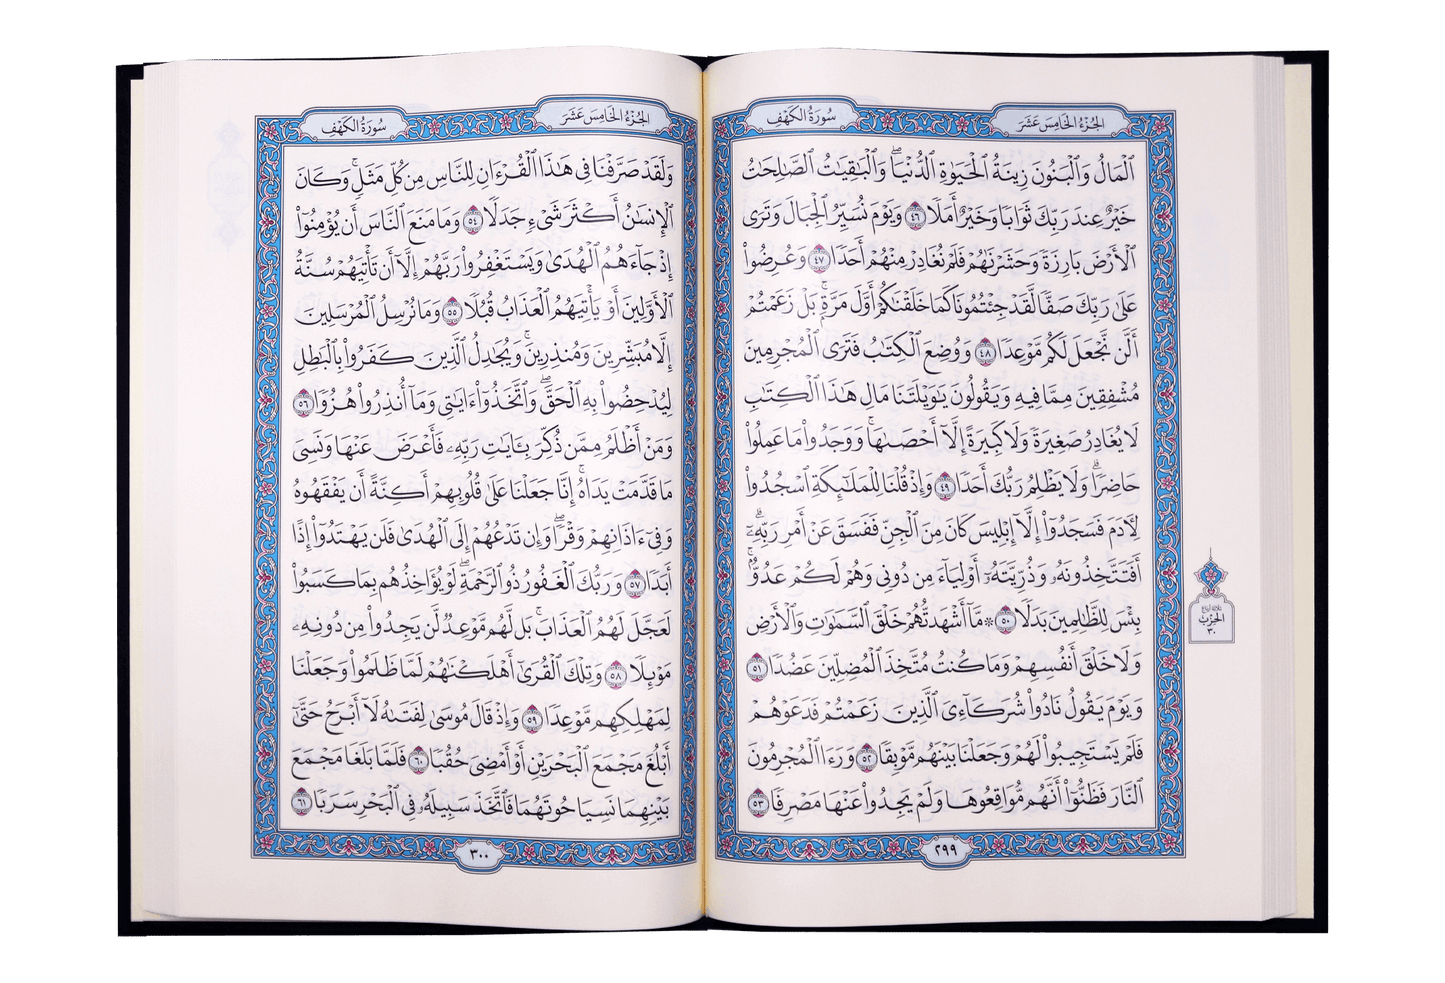 الجزء الخامس عشر
سورة الكهف
ٱلْمَالُ وَٱلْبَنُونَ زِينَةُ ٱلْحَيَوٰةِ ٱلدُّنْيَاۖ وَٱلْبَٰقِيَٰتُ ٱلصَّٰلِحَٰتُ
خَيْرٌ عِندَ رَبِّكَ ثَوَابًا وَخَيْرٌ أَمَلًا ٤٦ وَيَوْمَ نُسَيِّرُ ٱلْجِبَالَ وَتَرَى
ٱلْأَرْضَ بَارِزَةً وَحَشَرْنَٰهُمْ فَلَمْ نُغَادِرْ مِنْهُمْ أَحَدًا ٤٧ وَعُرِضُوا۟
عَلَىٰ رَبِّكَ صَفًّا لَّقَدْ جِئْتُمُونَا كَمَا خَلَقْنَٰكُمْ أَوَّلَ مَرَّةٍۭۚ بَلْ زَعَمْتُمْ
أَلَّن نَّجْعَلَ لَكُم مَّوْعِدًا ٤٨ وَوُضِعَ ٱلْكِتَٰبُ فَتَرَى ٱلْمُجْرِمِينَ
مُشْفِقِينَ مِمَّا فِيهِ وَيَقُولُونَ يَٰوَيْلَتَنَا مَالِ هَٰذَا ٱلْكِتَٰبِ
لَا يُغَادِرُ صَغِيرَةً وَلَا كَبِيرَةً إِلَّآ أَحْصَىٰهَاۚ وَوَجَدُوا۟ مَا عَمِلُوا۟
حَاضِرًاۗ وَلَا يَظْلِمُ رَبُّكَ أَحَدًا ٤٩ وَإِذْ قُلْنَا لِلْمَلَٰٓئِكَةِ ٱسْجُدُوا۟
لِـَٔادَمَ فَسَجَدُوٓا۟ إِلَّآ إِبْلِيسَ كَانَ مِنَ ٱلْجِنِّ فَفَسَقَ عَنْ أَمْرِ رَبِّهِۦٓۗ
أَفَتَتَّخِذُونَهُۥ وَذُرِّيَّتَهُۥٓ أَوْلِيَآءَ مِن دُونِى وَهُمْ لَكُمْ عَدُوٌّۢۚ
بِئْسَ لِلظَّٰلِمِينَ بَدَلًا ٥٠ ۞ مَّآ أَشْهَدتُّهُمْ خَلْقَ ٱلسَّمَٰوَٰتِ وَٱلْأَرْضِ
وَلَا خَلْقَ أَنفُسِهِمْ وَمَا كُنتُ مُتَّخِذَ ٱلْمُضِلِّينَ عَضُدًا ٥١
وَيَوْمَ يَقُولُ نَادُوا۟ شُرَكَآءِىَ ٱلَّذِينَ زَعَمْتُمْ فَدَعَوْهُمْ
فَلَمْ يَسْتَجِيبُوا۟ لَهُمْ وَجَعَلْنَا بَيْنَهُم مَّوْبِقًا ٥٢ وَرَءَا ٱلْمُجْرِمُونَ
ٱلنَّارَ فَظَنُّوٓا۟ أَنَّهُم مُّوَاقِعُوهَا وَلَمْ يَجِدُوا۟ عَنْهَا مَصْرِفًا ٥٣
٢٩٩
ثلاثة أرباع
الحزب
٣٠
الجزء الخامس عشر
سورة الكهف
وَلَقَدْ صَرَّفْنَا فِى هَٰذَا ٱلْقُرْءَانِ لِلنَّاسِ مِن كُلِّ مَثَلٍۚ وَكَانَ
ٱلْإِنسَٰنُ أَكْثَرَ شَىْءٍ جَدَلًا ٥٤ وَمَا مَنَعَ ٱلنَّاسَ أَن يُؤْمِنُوٓا۟
إِذْ جَآءَهُمُ ٱلْهُدَىٰ وَيَسْتَغْفِرُوا۟ رَبَّهُمْ إِلَّآ أَن تَأْتِيَهُمْ سُنَّةُ
ٱلْأَوَّلِينَ أَوْ يَأْتِيَهُمُ ٱلْعَذَابُ قُبُلًا ٥٥ وَمَا نُرْسِلُ ٱلْمُرْسَلِينَ
إِلَّا مُبَشِّرِينَ وَمُنذِرِينَۚ وَيُجَٰدِلُ ٱلَّذِينَ كَفَرُوا۟ بِٱلْبَٰطِلِ
لِيُدْحِضُوا۟ بِهِ ٱلْحَقَّۖ وَٱتَّخَذُوٓا۟ ءَايَٰتِى وَمَآ أُنذِرُوا۟ هُزُوًا ٥٦
وَمَنْ أَظْلَمُ مِمَّن ذُكِّرَ بِـَٔايَٰتِ رَبِّهِۦ فَأَعْرَضَ عَنْهَا وَنَسِىَ
مَا قَدَّمَتْ يَدَاهُۚ إِنَّا جَعَلْنَا عَلَىٰ قُلُوبِهِمْ أَكِنَّةً أَن يَفْقَهُوهُ
وَفِىٓ ءَاذَانِهِمْ وَقْرًاۖ وَإِن تَدْعُهُمْ إِلَى ٱلْهُدَىٰ فَلَن يَهْتَدُوٓا۟ إِذًا
أَبَدًا ٥٧ وَرَبُّكَ ٱلْغَفُورُ ذُو ٱلرَّحْمَةِۖ لَوْ يُؤَاخِذُهُم بِمَا كَسَبُوا۟
لَعَجَّلَ لَهُمُ ٱلْعَذَابَۚ بَل لَّهُم مَّوْعِدٌ لَّن يَجِدُوا۟ مِن دُونِهِۦ
مَوْئِلًا ٥٨ وَتِلْكَ ٱلْقُرَىٰٓ أَهْلَكْنَٰهُمْ لَمَّا ظَلَمُوا۟ وَجَعَلْنَا
لِمَهْلِكِهِم مَّوْعِدًا ٥٩ وَإِذْ قَالَ مُوسَىٰ لِفَتَىٰهُ لَآ أَبْرَحُ حَتَّىٰٓ
أَبْلُغَ مَجْمَعَ ٱلْبَحْرَيْنِ أَوْ أَمْضِىَ حُقُبًا ٦٠ فَلَمَّا بَلَغَا مَجْمَعَ
بَيْنِهِمَا نَسِيَا حُوتَهُمَا فَٱتَّخَذَ سَبِيلَهُۥ فِى ٱلْبَحْرِ سَرَبًا ٦١
٣٠٠